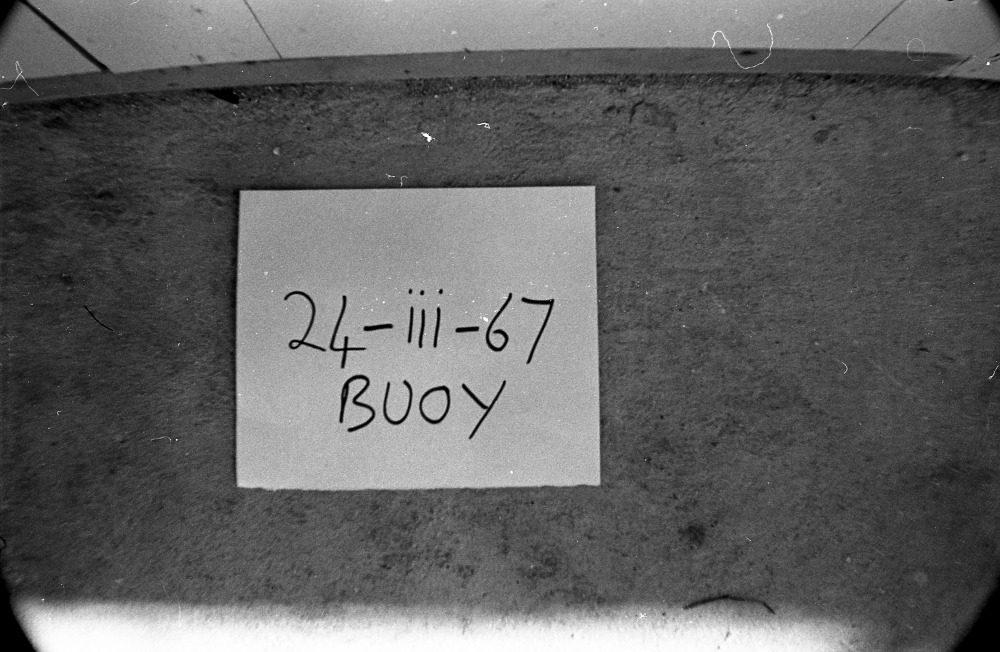 24-iii-67
BUOY